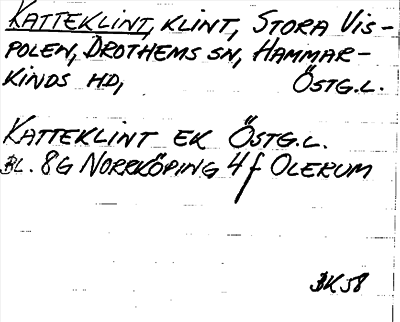 KATTEKLINT, KLINT, STORA VIS-
POLEN, DROTHEMS SN, HAMMAR-
KINDS HD, ÖSTG.L.
KATTEKLINT EK ÖSTG.L.
BL. 8G NORRKÖPING 4f OLERUM
BK58